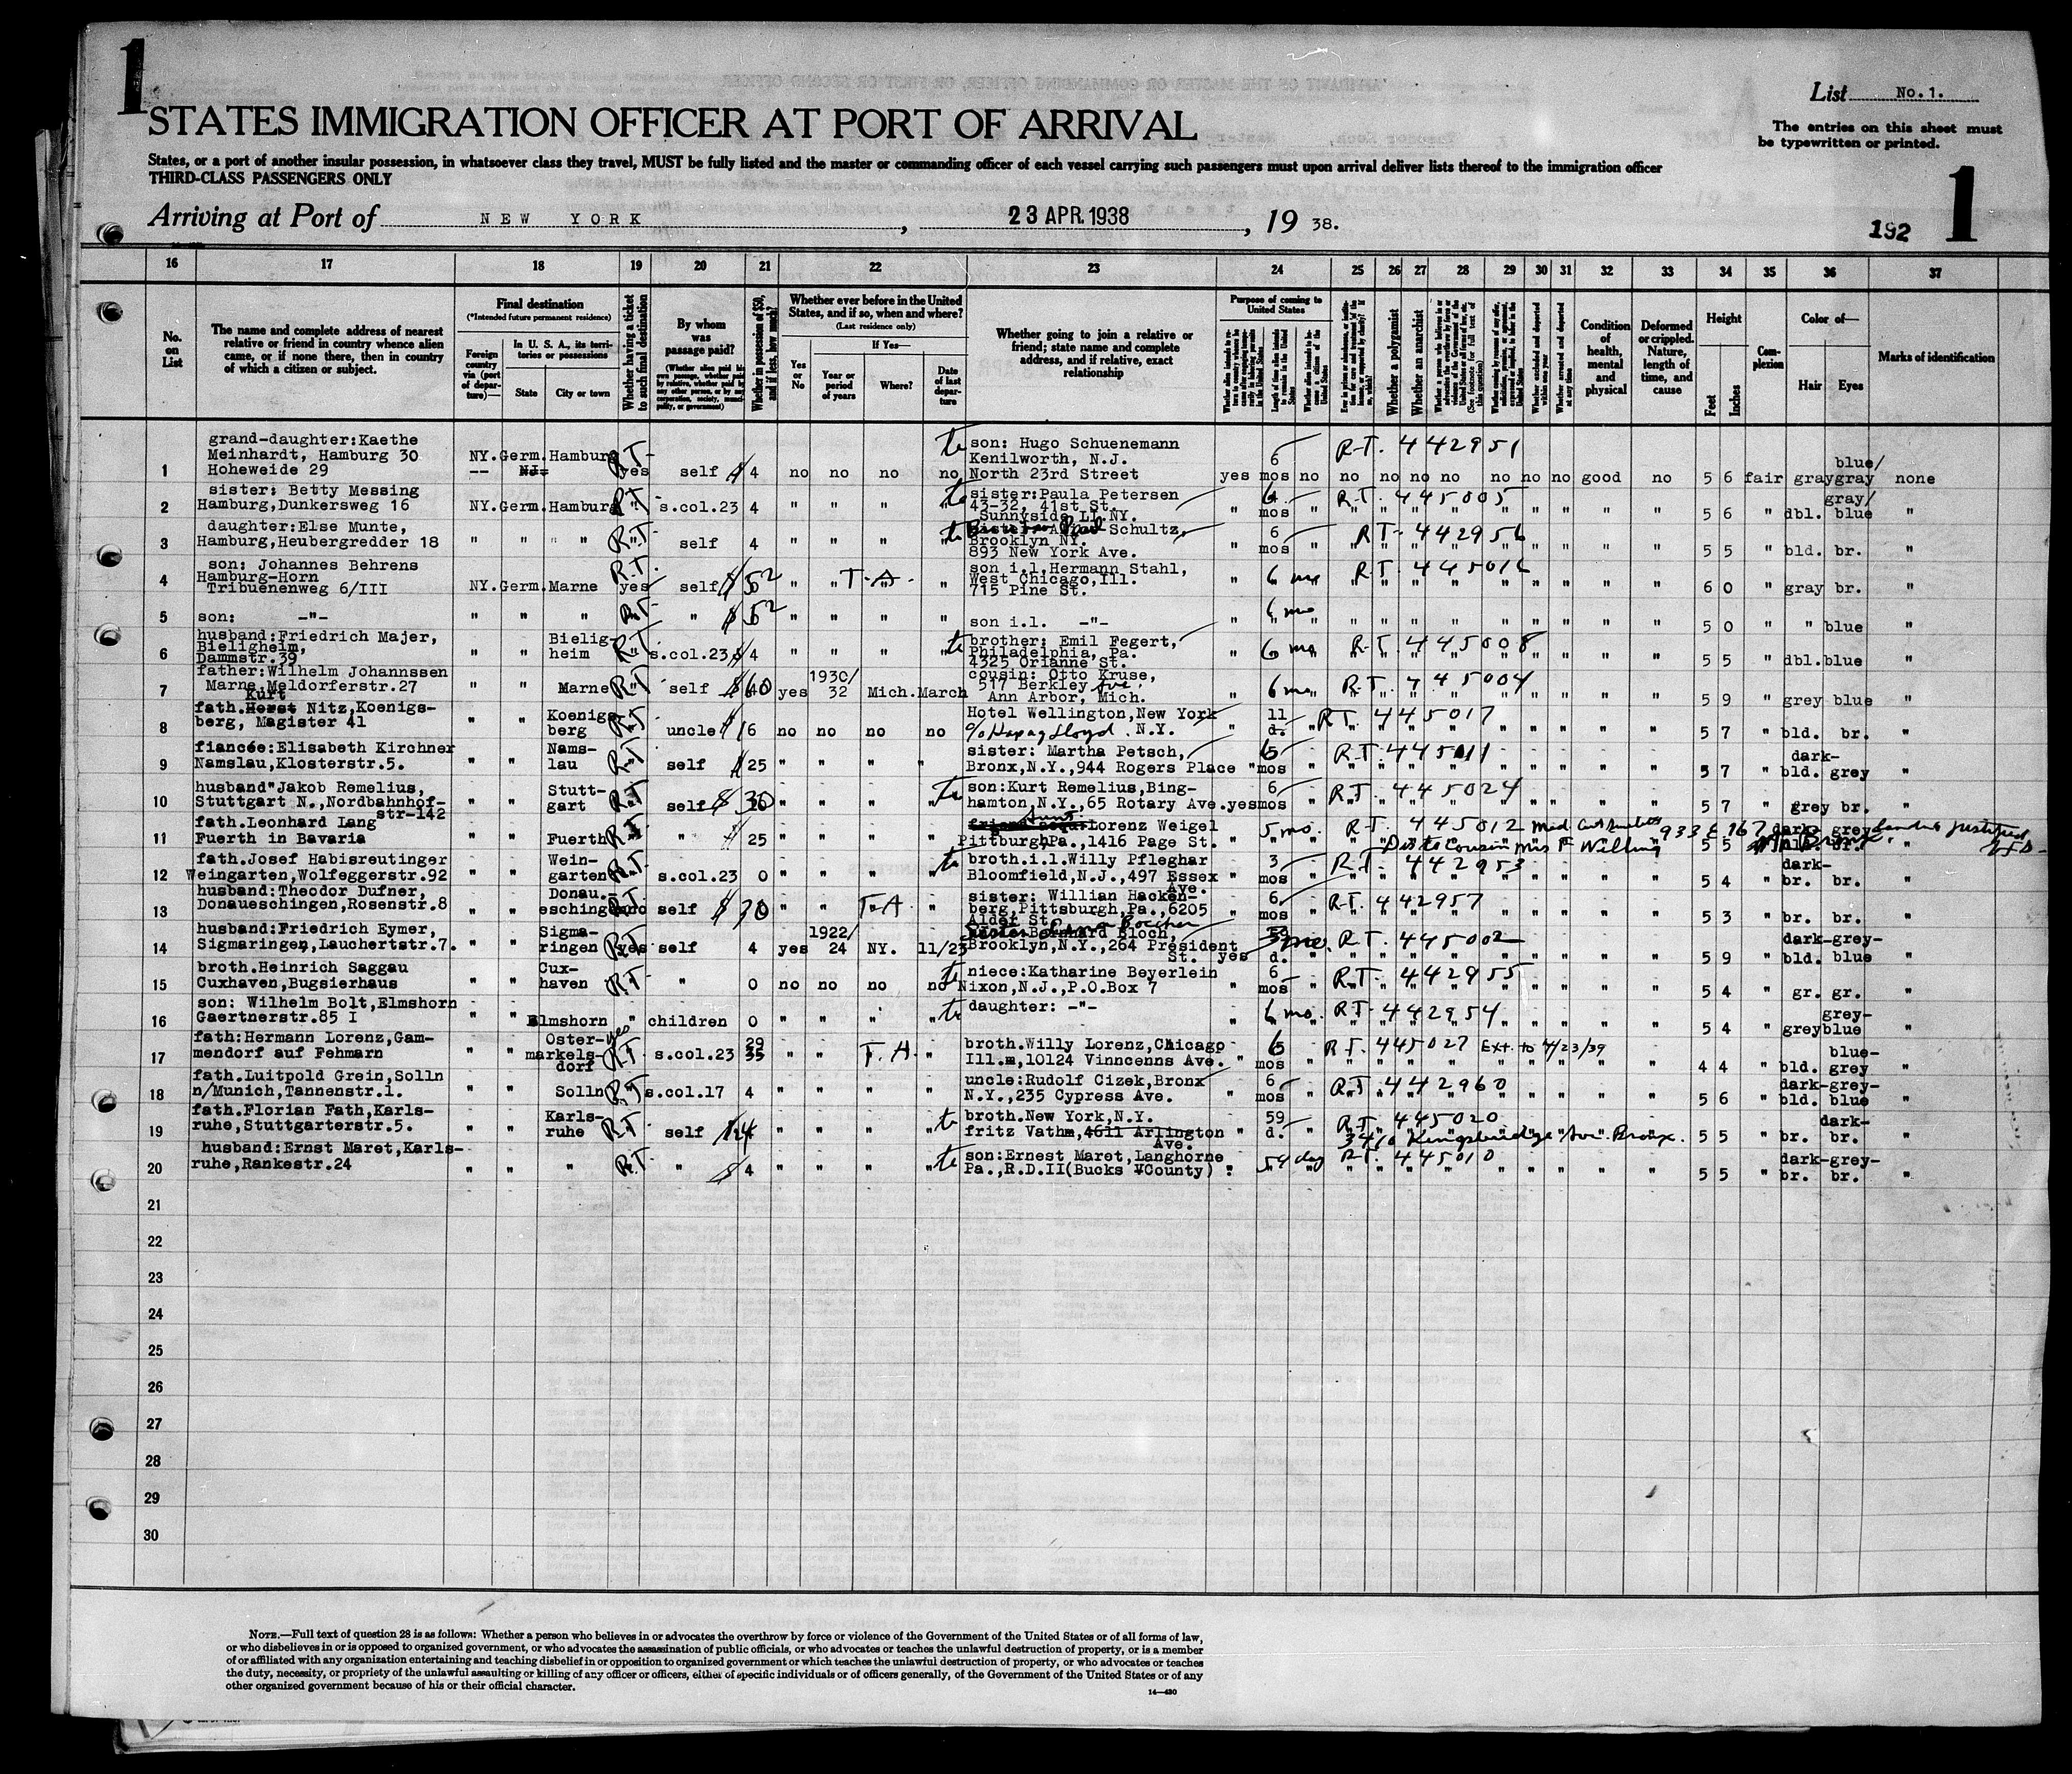 1
List No.1.
STATES IMMIGRATION OFFICER AT PORT OF ARRIVAL
The entries on this sheet must
be typewritten or printed.
States, or a port of another insular possession, in whatsoever class they travel, MUST be fully listed and the master or commanding officer of each vessel carrying such passengers must upon arrival deliver lists thereof to the immigration officer
THIRD-CLASS PASSENGERS ONLY
Arriving at Port of NEW YORK, 23 APR. 1938, 19 38.
192 1
16 17 18 19 20 21 22 23 24 25 26 27 28 29 30 31 32 33 34 35 36 37
No. on List
The name and complete address of nearest relative or friend in country whence alien came, or if none there, then in country of which a citizen or subject.
Final destination
(*Intended future permanent residence)
Foreign country via (port of departure)—
In U. S. A., its territories or possessions
State
City or town
Whether having a ticket to such final destination
By whom was passage paid?
(Whether alien paid his own passage, whether paid by relative, whether paid by any other person, or by any corporation, society, municipality, or government)
Whether in possession of $50, and if less, how much?
Whether ever before in the United States, and if so, when and where?
(Last residence only)
Yes or No
If Yes—
Year or period of years
Where?
Date of last departure
Whether going to join a relative or friend; state name and complete address, and if relative, exact relationship
Purpose of coming to United States
Whether a polygamist
Whether an anarchist
Condition of health, mental and physical
Deformed or crippled. Nature, length of time, and cause
Height
Feet
Inches
Complexion
Color of—
Hair
Eyes
Marks of identification
1 grand-daughter:Kaethe Meinhardt, Hamburg 30 Hoheweide 29 NY.Germ.Hamburg -- NJ. R.T. yes self $4 no no no no to son: Hugo Schuenemann Kenilworth, N.J. North 23rd Street yes 6 mos no R-T. 442951 no no no no no no no good no 5 6 fair gray blue/gray none
2 sister: Betty Messing Hamburg,Dunkersweg 16 NY.Germ.Hamburg R.T. s.col.23 4 " " " " to sister:Paula Petersen 43-32, 41st St. Sunnyside LI.NY. " 6 mos " R-T. 445005 " " 5 6 " dbl. gray/blue "
3 daughter:Else Munte, Hamburg,Heubergredder 18 " " " " R.T. self 4 " " " " to Schultz, Brooklyn NY. 893 New York Ave. " 6 mos " R.T- 442956 " " 5 5 " bld. br. "
4 son: Johannes Behrens Hamburg-Horn Tribuenenweg 6/III NY.Germ.Marne R.T. yes self $52 " " T.A. " son i.l,Hermann Stahl, West Chicago,Ill. 715 Pine St. " 6 mo " R.T. " " 6 0 " gray br. "
5 son: -"- " " " R.T. " $52 " " " " son i.l. -"- " 6 mo " " " 5 0 " " blue "
6 husband:Friedrich Majer, Bieligheim, Dammstr.39 " " Bieligheim R.T. s.col.23 $4 " " " " to brother: Emil Fegert, Philadelphia, Pa. 4325 Orianne St. " 6 mo " R-T. 445008 " " 5 5 " dbl.blue "
7 father:Wilhelm Johannssen Marne,Meldorferstr.27 " " Marne R.T self $60 yes 1930/32 Mich.March cousin: Otto Kruse, 517 Berkley Ave. Ann Arbor, Mich. " 6 mo " R.T. 445004 " " 5 9 " grey blue "
8 fath. Kurt Nitz,Koenigsberg, Magister 41 " " Koenigsberg R.T uncle $16 no no no no Hotel Wellington,New York c/o Hapag Lloyd N.Y. " 11 d. " R.T. 445017 " " 5 7 " bld. br. "
9 fiancée:Elisabeth Kirchner Namslau,Klosterstr.5. " " Namslau R.T self $25 " " " " sister: Martha Petsch, Bronx,N.Y.,944 Rogers Place " 6 mos " R.T. 445011 " " 5 7 " dark-bld. grey "
10 husband"Jakob Remelius, Stuttgart N.,Nordbahnhof-str-142 " " Stuttgart R.T self $30 " " " " to son:Kurt Remelius,Binghamton,N.Y.,65 Rotary Ave.yes 6 mos " R.T. 445024 " " 5 7 " grey br. "
11 fath.Leonhard Lang Fuerth in Bavaria " " Fuerth R.T " $25 " " " " aunt Lorenz Weigel Pittburgh,Pa.,1416 Page St. " 5 mo. " R-T. 445012 Dis to cousin Mrs F Willing 933 E 167 Bronx 5 5 "
12 fath.Josef Habisreutinger Weingarten,Wolfeggerstr.92 " " Weingarten R.T. s.col.23 0 " " " " to broth.i.l.Willy Pfleghar Bloomfield,N.J.,497 Essex Ave. " 3 mos " R.T. 442953 " " 5 4 " dark-br. br. "
13 husband:Theodor Dufner, Donaueschingen,Rosenstr.8 " " Donau.eschingen no self $30 " " T.A " sister: Willian Hackenberg,Pittsburgh,Pa.,6205 Alder St. " 6 mos " R-T. 442957 " " 5 3 " br. br. "
14 husband:Friedrich Eymer, Sigmaringen,Lauchertstr.7. " " Sigmaringen R.T yes self 4 yes 1922/24 NY. 11/23 Bernhard Bloch, Brooklyn,N.Y.,264 President St. yes 59 d. " R.T. 445002 " " 5 9 " dark-bld. grey-blue "
15 broth.Heinrich Saggau Cuxhaven,Bugsierhaus " " Cuxhaven R.T. " 0 no no no no to niece:Katharine Beyerlein Nixon,N.J.,P.O.Box 7 " 6 mos " R.T. 442955 " " 5 4 " gr. gr. "
16 son: Wilhelm Bolt,Elmshorn Gaertnerstr.85 I " " Elmshorn " children 0 " " " " to daughter: -"- " 6 mo. " R.T- 442954 " " 5 4 " grey grey-blue "
17 fath:Hermann Lorenz,Gammendorf auf Fehmarn " " Oster-markelsdorf yes R.T. s.col.23 29 35 " " T.A. " broth.Willy Lorenz,Chicago Ill.,10124 Vinncenns Ave. " 6 mos " R.T. 445027 Ext. to 4/23/39 " " 4 4 " bld. blue-grey "
18 fath.Luitpold Grein,Solln n/Munich,Tannenstr.1. " " Solln R.T s.col.17 4 " " " " uncle:Rudolf Cizek,Bronx N.Y.,235 Cypress Ave. " 6 mos " R.T. 442960 " " 5 6 " dark-bld. grey-blue "
19 fath.Florian Fath,Karlsruhe,Stuttgarterstr.5. " " Karlsruhe R.T. self $24 " " " " to broth.New York,N.Y. fritz Vath, 4611 Arlington Ave. " 59 d. " R.T. 445020 3410 Kingsbridge Ave. Bronx. 5 5 " br. dark-br. "
20 husband:Ernst Maret,Karlsruhe,Rankestr.24 " " " R.T. " $4 " " " " to son:Ernest Maret,Langhorne Pa.,R.D.II(Bucks County) " 59 day " R.T. 445010 " " 5 5 " dark-br. grey-br. "
21
22
23
24
25
26
27
28
29
30
NOTE.—Full text of question 28 is as follows: Whether a person who believes in or advocates the overthrow by force or violence of the Government of the United States or of all forms of law,
or who disbelieves in or is opposed to organized government, or who advocates the assassination of public officials, or who advocates or teaches the unlawful destruction of property, or is a member
of or affiliated with any organization entertaining and teaching disbelief in or opposition to organized government or which teaches the unlawful destruction of property, or who advocates or teaches
the duty, necessity, or propriety of the unlawful assaulting or killing of any officer or officers, either of specific individuals or of officers generally, of the Government of the United States or of any
other organized government because of his or their official character.
14—430